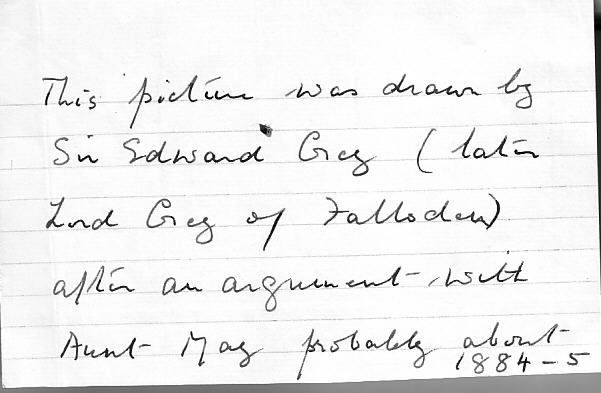 This picture was drawn by
Sir Edward Grey (later
Lord Grey of Falloden)
after an argument with
Aunt May probably about
1884-5